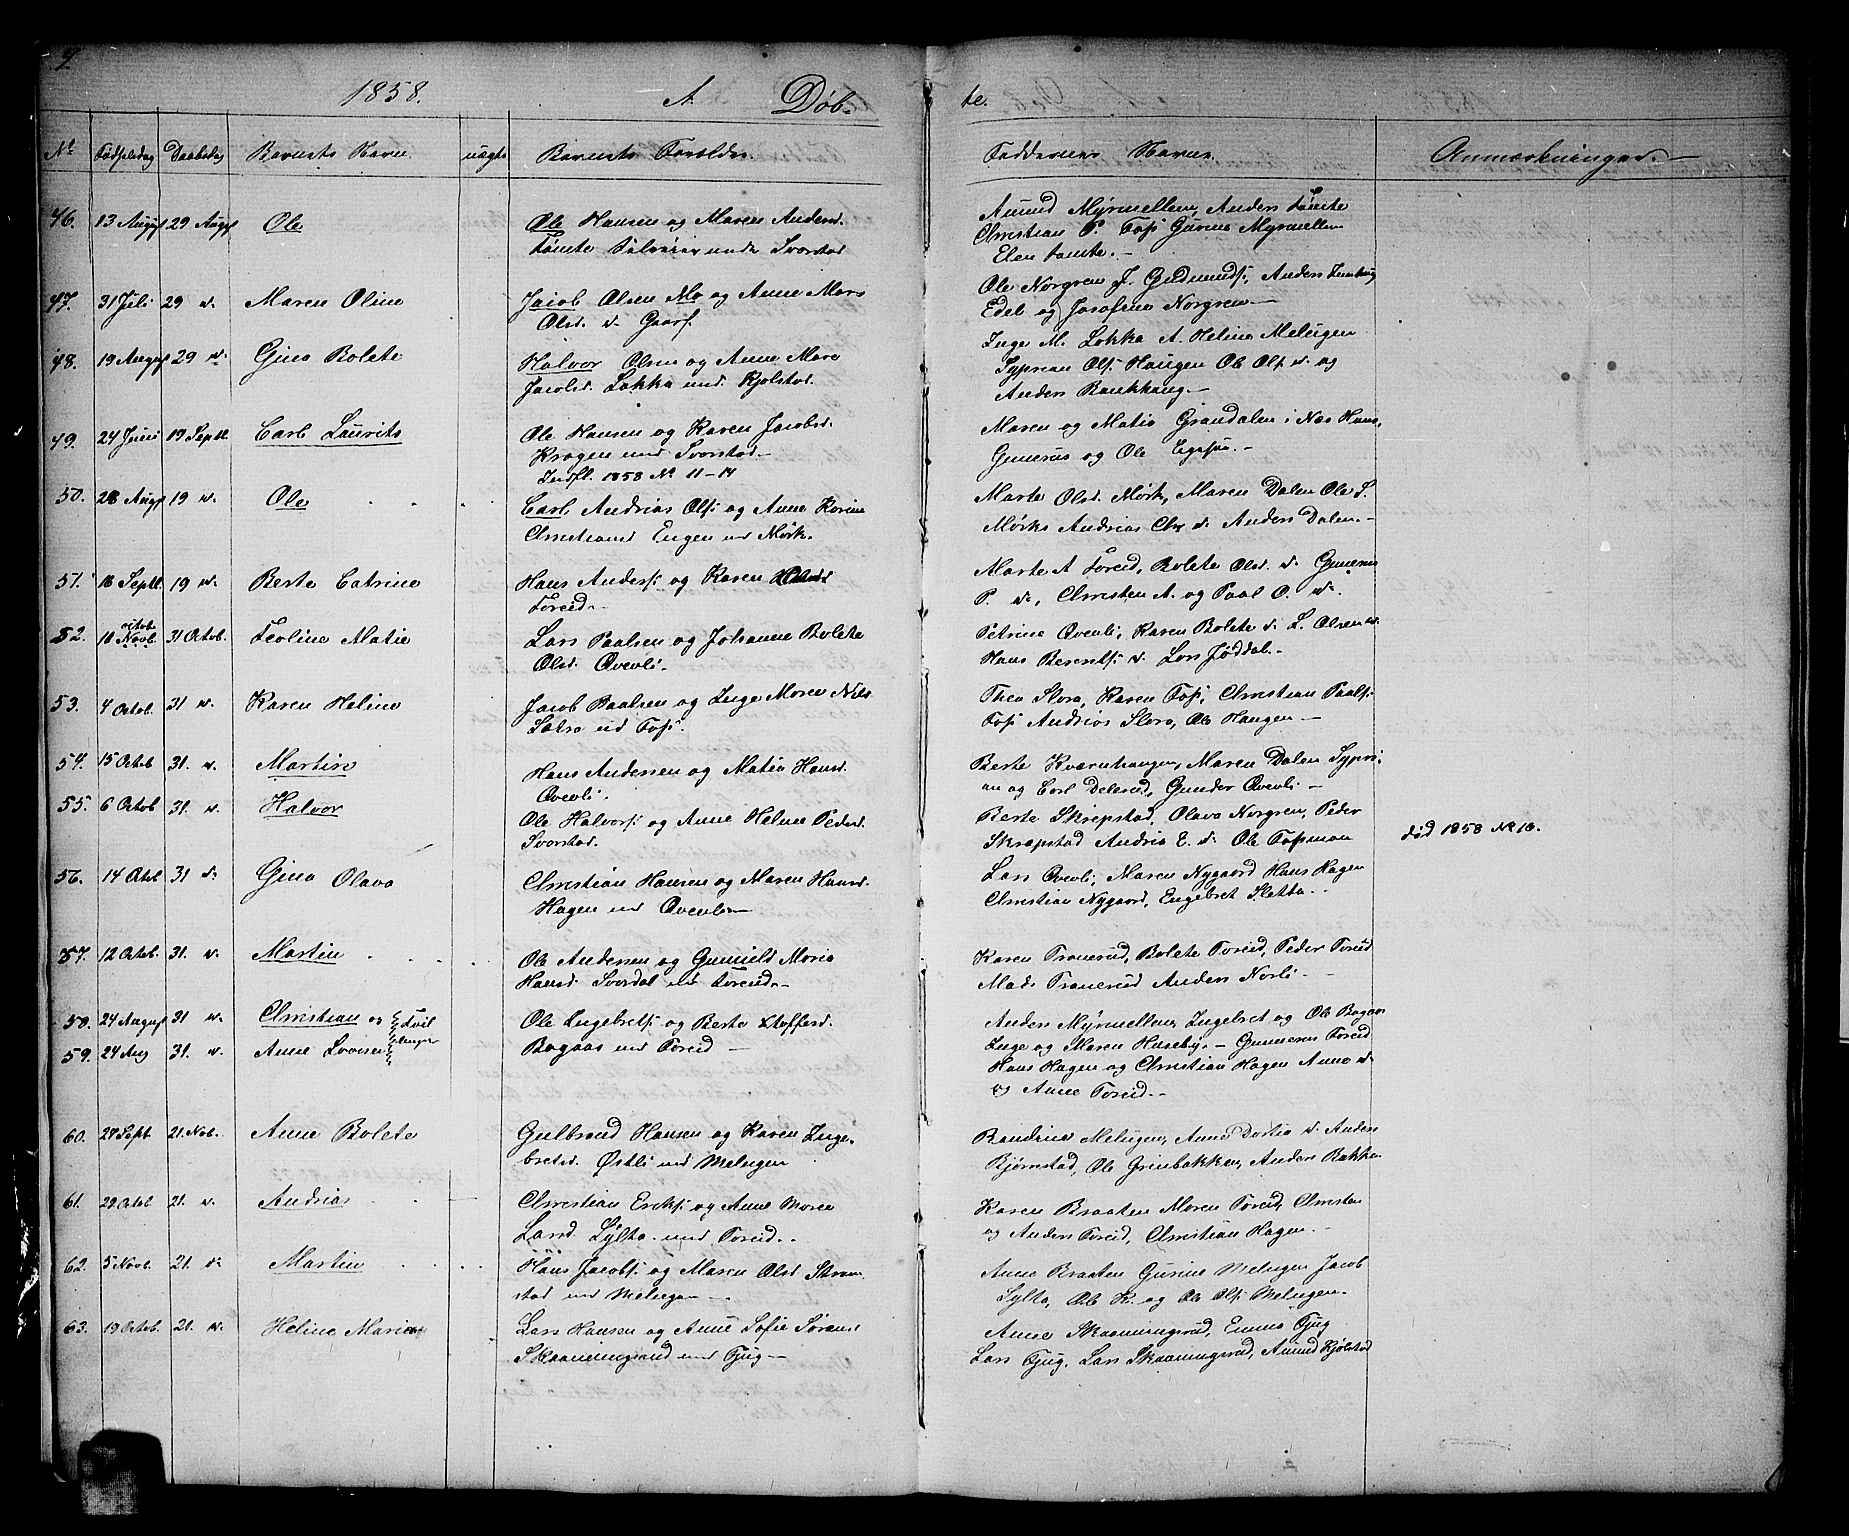 1858. A Døb- te.
No Födselsdag Daabsdag Barnets Navn uægte Barnets Forældre Faddernes Navne. Anmærkninger.
46. 13 August 29 August Ole
Ole Hansen og Maren Andersd.
Tömte under Svorstad
Amund Myrmellem, Anders Tömte
Christian P. Foss Gurine Myrmellem
Elen Tömte.
47. 31 Juli 29 d. Maren Oline
Jacob Olsen Mo og Anne Mars
Olsd. d. Gaars.
Ole Norgren J. Gudmunds. Anders
Edel og Josefine Norgren
48. 19 August 29 d. Gina Bolete
Halvor Olsen og Anne Mare
Jacobsd. Løkka und. Kjølstad.
Inge M. Løkka A. Heline Melugen
Syprian Ols. Haugen Ole Ols. d. og
Anders Baukhaug.
49. 24 Juni 19 Septb. Carl Laurits
Ole Hansen og Karen Jacobsd.
Kragen und Svorstad
Indfl. 1858 No 11-14
Maren og Matia Grandalen i Næs Hans,
Gunerus og Ole
50. 28 August 19 d. Ole
Carl Andrias Ols. og Anne Karine
Christiansd Engen und Mørk.
Marte Olsd. Mørk, Maren Dalen Ole L.
Mørk Andrias Chr. d. Anders Dalen.
51. 16 Septb. 19 d. Berte Catrine
Hans Anders. og Karen
Toreid.
Marte A Toreid, Bolete Olsd. d. Gunerus
P. d., Christen A. og Paal O. d.
52. 10 Novb. octob. 31 Octob. Teoline Matie
Lars Paalsen og Johanne Bolete
Olsd. Qvevli.
Petrine Qvevli, Karen Bolete d. L. Olsen d.
Hans Berents. d. Lars Jøddal.
53. 4 Octob. 31 d. Karen Heline
Jacob Paalsen og Inge Maree Nils
ud Foss.
Thea Slora, Karen Foss, Christian Paals.
Foss Andrias Slora, Ole Haugen
54. 15 Octob 31. d. Martin
Hans Andersen og Matia Hansd.
Qvevli.
Berte Kværnhaugen, Maren Dalen Sypri-
an og Carl Delerud, Gunder Qvevli
55. 6 Octob 31. d. Halvor
Ole Halvors. og Anne Helene Pedersd.
Svorstad.
Berte Skrepstad, Olava Norgren, Peder
Skrepstad Andrias E. d. Ole Fossmoen
död 1858 No 18.
56. 14 Octob 31 d. Gina Olava
Christian Hansen og Maren Hansd.
Hagen und Qvevli
Lars Qvevli, Maren Nygaard Hans Hagen
Christian Nygaard, Engebret Sletta.
57. 12 Octob. 31. d. Martin
Ole Andersen og Gunild Maria
Hansd. Svordal und Toreid.
Karen Tranerud, Bolete Toreid, Peder Toreid
Mads Tranerud Anders Norli.
58. 24 August 31 d. Christian og Tvil-
59. 24 Aug 31. d. Anne Lovise linger
Ole Engebrets. og Berte Stoffersd.
Bagaas und Toreid
Anders Myrmellem, Engebret og Ole Bagaas
Inge og Maren Huseby. - Gunnerus Toreid
Hans Hagen og Christian Hagen Anne d.
og Anne Toreid.
60. 24 Sept 21. Nob. Anne Bolete
Gulbrand Hansen og Karen Inge-
bretsd. Østli und Melugen
Randine Melugen, Anne Dortia d. Anders
Bjørnstad, Ole Grinbakken, Anders Bakken
61. 29 Octob 21. d. Andrias
Christian Eriks. og Anne Maree
Larsd. Sylta. und Toreid.
Karen Braaten Maren Toreid, Christen
og Anders Toreid, Christian Hagen.
62. 5 Novb. 21. d. Martin
Hans Jacobs. og Maren Olsd. Strøm-
stad und Melugen
Anne Braaten Gurine Melugen Jacob
Sylta, Ole K. og Ole Ols. Melugen.
63. 19 Octob. 21. d. Heline Marie
Lars Hansen og Anne Sofie Sørensd
Skaanningsrud und Fjug
Anne Skaanningsrud, Emma Fjug
Lars Fjug, Lars Skaaningsrud, Amund Kjølstad